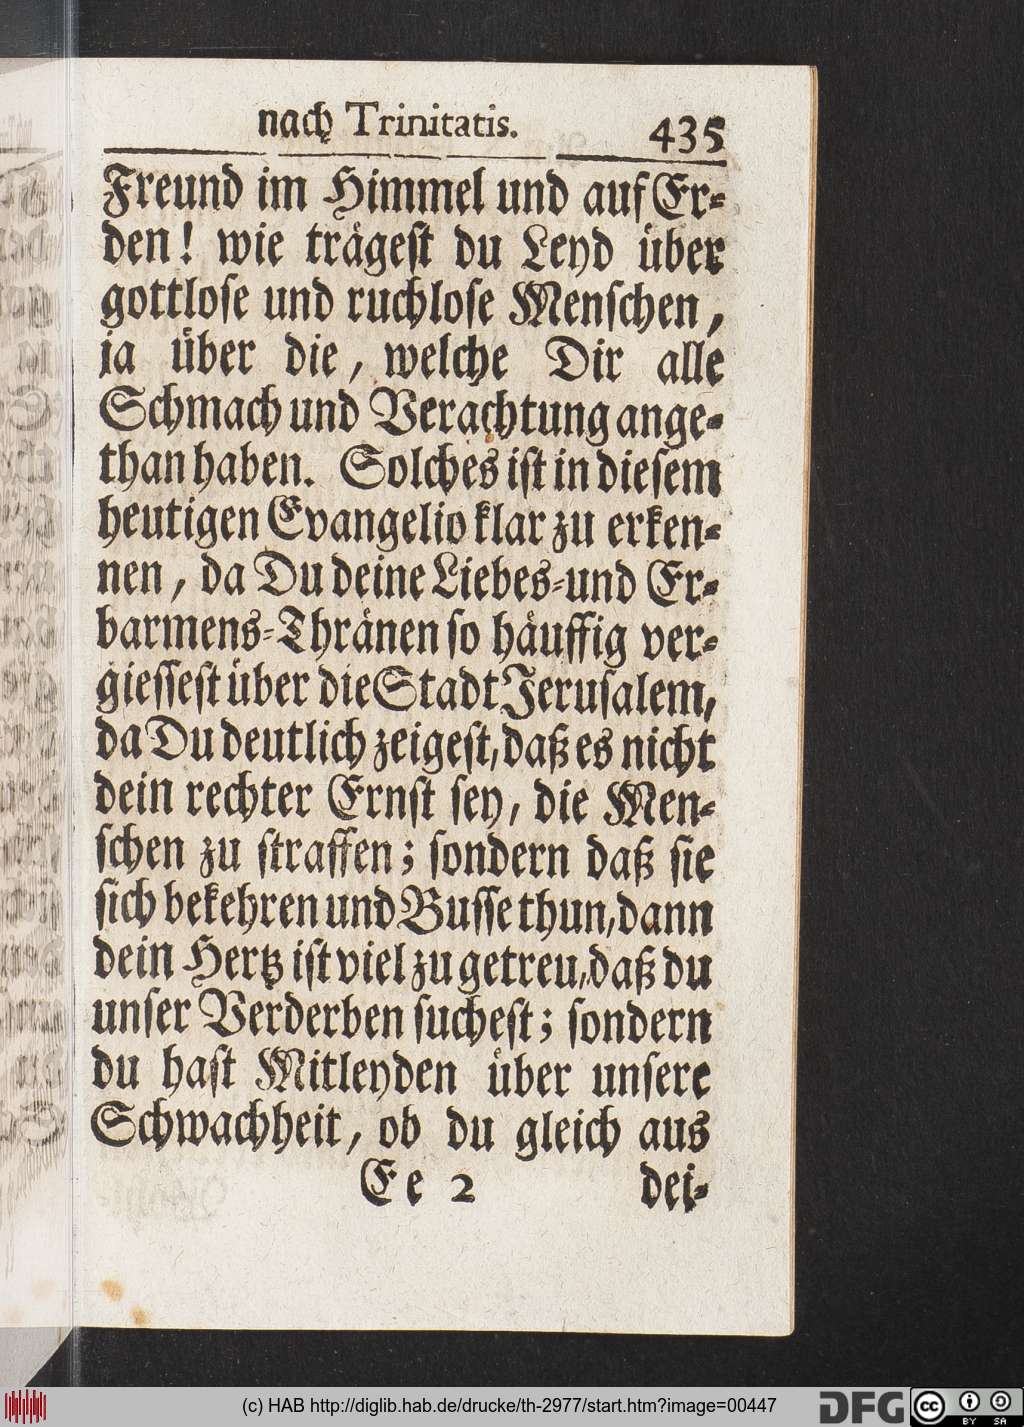 nach Trinitatis. 435
Freund im Himmel und auf Er-
den! wie trägest du Leyd über
gottlose und ruchlose Menschen,
ja über die, welche Dir alle
Schmach und Verachtung ange-
than haben. Solches ist in diesem
heutigen Evangelio klar zu erken-
nen, da Du deine Liebes-und Er-
barmens-Thränen so häuffig ver-
giessest über die Stadt Jerusalem,
da Du deutlich zeigest, daß es nicht
dein rechter Ernst sey, die Men-
schen zu straffen; sondern daß sie
sich bekehren und Busse thun, dann
dein Hertz ist viel zu getreu, daß du
unser Verderben suchest; sondern
du hast Mitleyden über unsere
Schwachheit, ob du gleich aus
Ee 2 dei-
(c) HAB http://diglib.hab.de/drucke/th-2977/start.htm?image=00447
DFG
cc BY SA